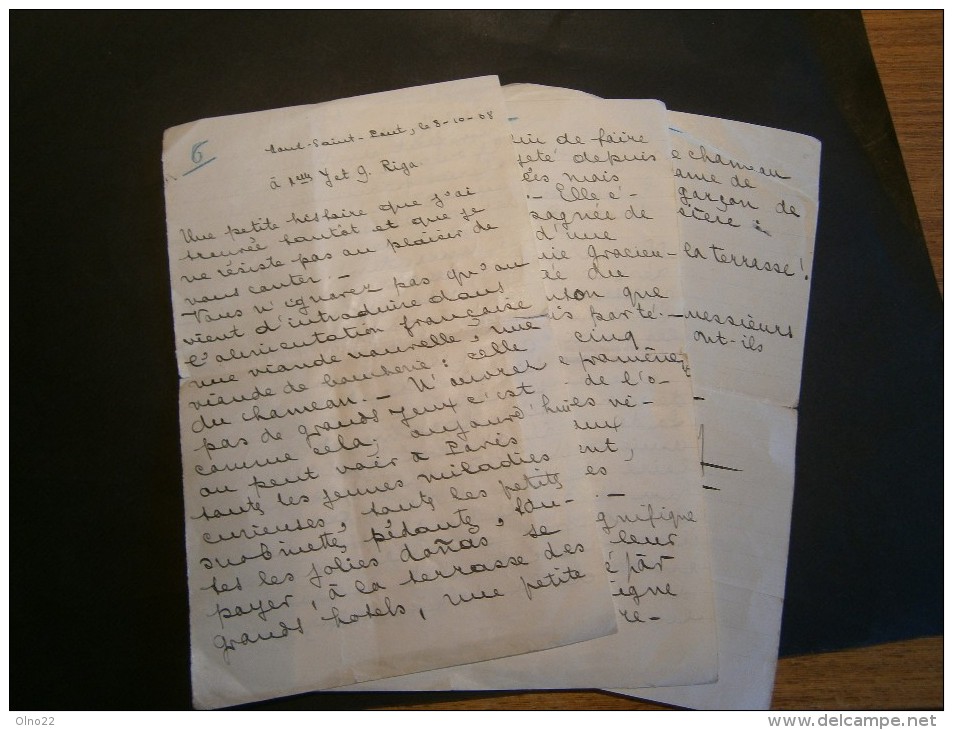 6
Saint-Paul, le 3-10-08
à Y et G. Riga
Une petite histoire que j'ai
trouvée tantôt et que je
ne résiste pas au plaisir de
vous conter —
Vous n'ignorez pas qu'on
vient d'introduire dans
l'alimentation française
une viande nouvelle, une
viande de boucherie : celle
du chameau. — N'ouvrez
pas de grands yeux c'est
comme cela; aujourd'hui
on peut voir à Paris
toutes les jeunes miladies
curieuses, toutes les petites
snobinettes pédantes, tou-
tes les jolies doñas se
payer à la terrasse des
grands hotels, une petite
de faire
jeté depuis
mais
— Elle é-
pagnée de
d'une
gracieu-
du
que
parté. —
cinq
première
de l'o-
es vi-
ux
nt,
es
. —
gnifique
leur
é par
igne
re-
e chameau
ame de
garçon de
stère :
la terrasse !
messieurs
ont-ils
Olno22
www.delcampe.net